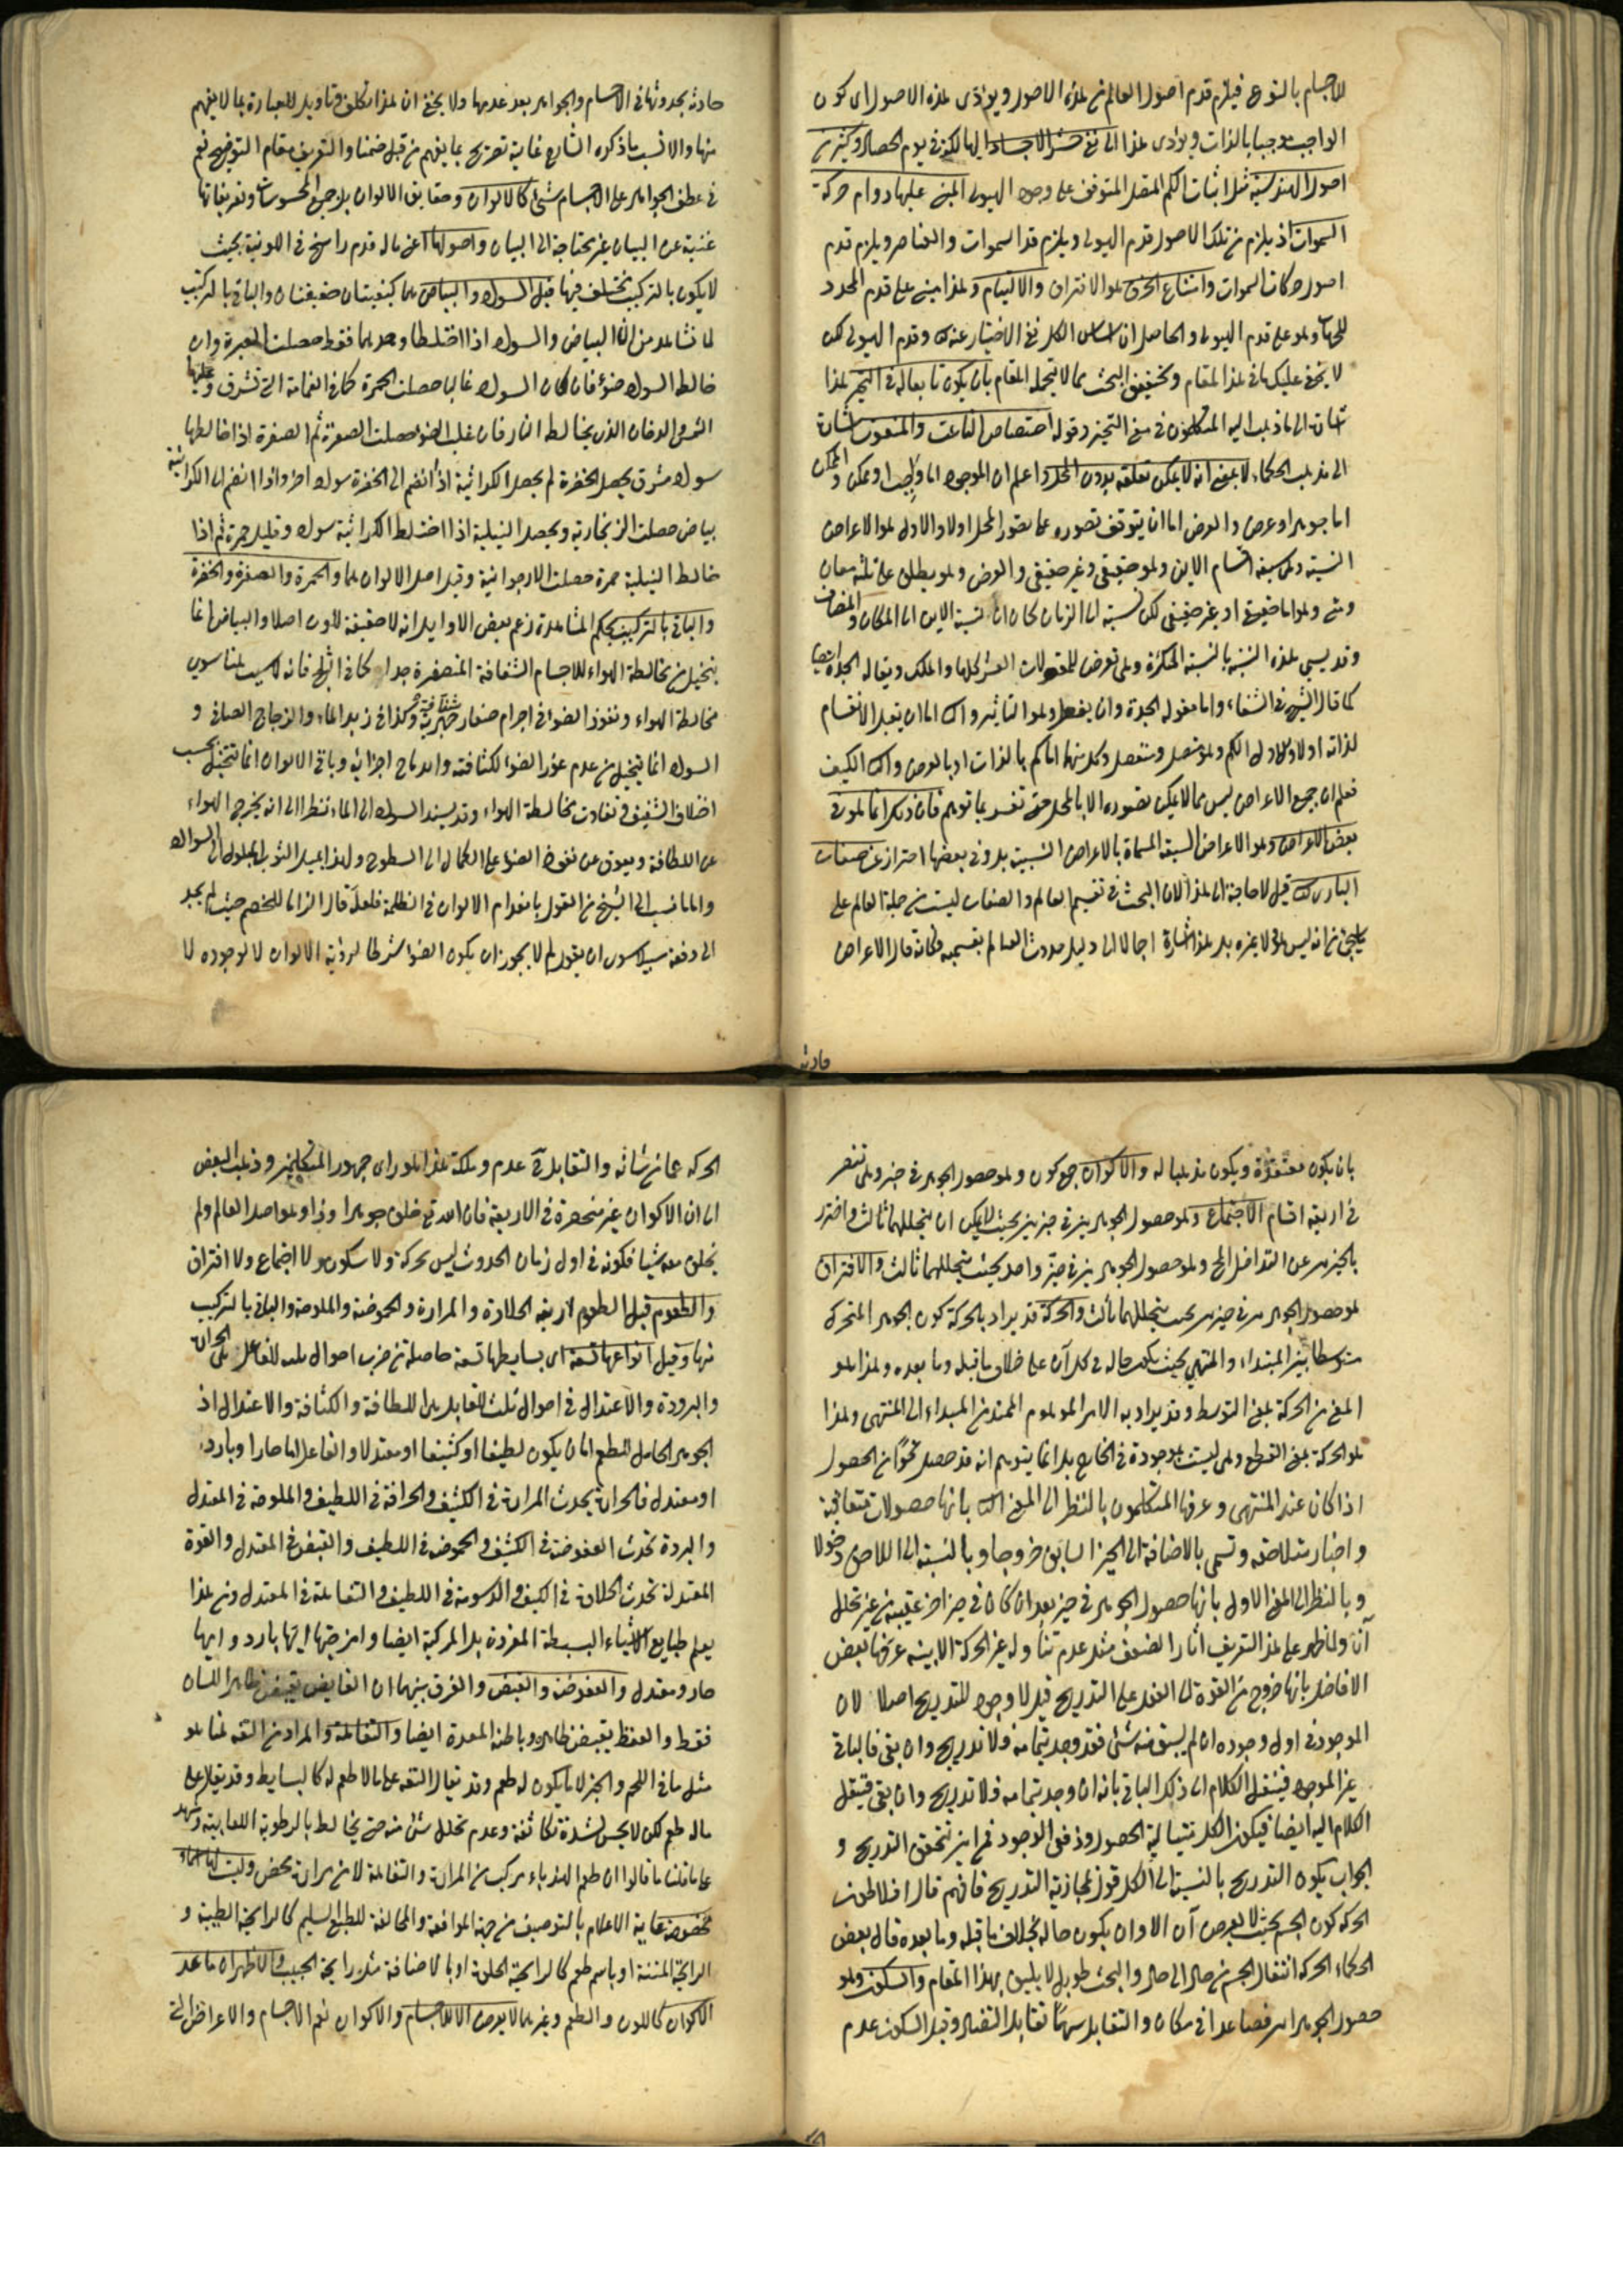 الاجسام بالنوع فيلزم قدم اصول العالم من هذه الاصول ويؤدى هذه الاصول اى كون
الواجب موجبا بالذات ويؤدى هذا الى نفى حشر الاجساد
اصول الهندسية مثل اثبات الكم المتصل المتوقف على وجود الهيولى المبنى عليها دوام حركة
السموات اذ يلزم من تلك الاصول قدم الهيولى ويلزم قدم السموات والعناصر ويلزم قدم
اصول حركات السموات وامتناع الخرق هو الافتراق والالتيام وهذا مبنى على قدم المحدد
للجهات وهو على قدم الهيولى والحاصل ان اساس الكل نفى الاختيار عنه وقدم الهيولى لكن
لا يخفى عليك ما فى هذا المقام وتحقيق البحث مما لا يتحمله المقام بان يكون تابعا له فى التحيز هذا
اشارة الى ما ذهب اليه المتكلمون فى معنى التحيز وقوله اختصاص الناعت والمنعوت اشارة
الى مذهب الحكماء لا بمعنى انه لا يمكن تعلقه بدون المحل واعلم ان الموجود اما واجب او ممكن والممكن
اما جوهر او عرض والعرض اما ان يتوقف تصوره على تصور المحل اولا والاول هو الاعراض
النسبية وهى سبعة اقسام الاين وهو حقيقى وغير حقيقى والوضع وهو يطلق على ثلثة معان
ومتى وهو اما حقيقى او غير حقيقى لكن نسبة الى الزمان كما ان نسبة الاين الى المكان والمضاف
وقد يسمى هذه النسبة بالنسبة المتكررة وهى تعرض للمقولات العشر كلها والملك ويقال له الجدة ايضا
كما قال الشيخ فى الشفاء واما مقولة الجدة وان يفعل وهو التأثير والثانى اما ان يقبل الانقسام
لذاته اولا والاول الكم وهو متصل ومنفصل وكل منهما اما كم بالذات او بالعرض والثانى الكيف
فعلم ان جميع الاعراض ليس مما لا يمكن تصوره الا بالمحل حتى تفسر بما توهم فان ذلك انما هو فى
بعض الاعراض وهو الاعراض السبعة المسماة بالاعراض النسبية بل وفى بعضها احتراز عن صفات
البارى قيل لا حاجة الى هذا لان البحث فى تقسيم العالم والصفات ليست من جملة العالم على
ما يجئ من انه ليس هو ولا غيره بل هذا اشارة اجمالا الى دليل حدوث العالم بقسميه فكانه قال الاعراض
حادثة
حادثة بحدوثها فى الاجسام والجواهر بعد عدمها ولا يخفى ان هذا تكلف وتاويل للعبارة بما لا يفهم
منها والانسب ما ذكره الشارح غاية تصريح بما يفهم من قبل ضمنا والتعريف مقام التوضيح نعم
فى عطف الجواهر على الاجسام شئ كالالوان وحقايق الالوان بل جميع المحسوسات وتعريفاتها
غنية عن البيان غير محتاجة الى البيان واصولها اعنى ما له قدم راسخ فى اللونية بحيث
لا يكون بالتركيب تختلف فيها قيل السواد والبياض هما كيفيتان حقيقتان والباقى بالتركيب
لما نشاهد من ان البياض والسواد اذا اختلطا وحدهما فقط حصلت الغبرة وان
خالط السواد ضوء فان كان السواد غالبا حصلت الحمرة كما فى الغمامة التى تشرق عليها
الشمس والدخان الذى يخالط النار فان غلب الضوء حصلت الصفرة ثم الصفرة اذا خالطها
سواد مشرق يحصل الخضرة ثم يحصل الكراثية اذا انضم الى الخضرة سواد اخر واذا انضم الى الكراثية
بياض حصلت الزنجارية ويحصل النيلية اذا اختلط الكراثية سواد وقليل حمرة ثم اذا
خالط النيلية حمرة حصلت الارجوانية وقيل اصل الالوان هما والحمرة والصفرة والخضرة
والباقى بالتركيب بحكم المشاهدة زعم بعض الاوايل انه لا حقيقة للون اصلا والبياض انما
يتخيل من مخالطة الهواء للاجسام الشفافة المتصغرة جدا كما فى الثلج فانه لا سبب هناك سوى
مخالطة الهواء ونفوذ الضوء فى اجرام صغار جمدية شفافة وكذا فى زبد الماء والزجاج الصافى و
السواد انما يتخيل من عدم غور الضوء لكثافته واندماج اجزائه وباقى الالوان انما تتخيل بحسب
اختلاف الشفيف وتفاوت مخالطة الهواء وقد يسند السواد الى الماء نظرا الى انه يخرج الهواء
عن اللطافة ويعوق عن نفوذ الضوء على الكمال الى السطوح ولهذا يميل الثوب المبلول الى السواد
واما ما نسب الى الشيخ من القول بانعدام الالوان فى الظلمة فلعله قال الزاما للخصم حيث لم يجد
الى دفعه سبيلا سوى ان يقول لم لا يجوز ان يكون الضوء شرطا لرؤية الالوان لا لوجوده لا
بان يكون معتقدة ويكون مذهبا له والاكوان جمع كون وهو حصول الجوهر فى حيز وهى تنحصر
فى اربعة اقسام الاجتماع وهو حصول الجوهرين فى حيزين بحيث لا يمكن ان يتخللهما ثالث واحترز
بالحيزين عن التداخل المحال وهو حصول الجوهرين فى حيز واحد بحيث يتخللهما ثالث والافتراق
هو حصول الجوهرين فى حيزين بحيث يتخللهما ثالث والحركة قد يراد بالحركة كون الجوهر المتحرك
متوسطا بين المبتداء والمنتهى بحيث يكون حاله فى كل آن على خلاف ما قبله وما بعده وهذا هو
المعنى من الحركة بمعنى التوسط وقد يراد به الامر الموهوم الممتد من المبداء الى المنتهى وهذا
هو الحركة بمعنى القطع وهى ليست بموجودة فى الخارج بل انما يتوهم انه قد حصل نحوا من الحصول
اذا كان عند المنتهى وعرفها المتكلمون بالنظر الى المعنى الثانى بانها حصولات متعاقبة
واحياز متلاحقة وتسمى بالاضافة الى الحيز السابق خروجا وبالنسبة الى اللاحق دخولا
وبالنظر الى المعنى الاول بانها حصول الجوهر فى حيز بعد ان كان فى حيز اخر عقيبه من غير تخلل
آن ولما ظهر على هذا التعريف اثار الضعف مثل عدم تناوله غير الحركة الاينية عرفها بعض
الافاضل بانها خروج من القوة الى الفعل على التدريج قيل لا وجود للتدريج اصلا لان
الموجود فى اول وجوده ان لم يبق منه شئ فقد وجد بتمامه ولا تدريج وان بقى فالباقى
غير الموجود فينتقل الكلام الى ذلك الباقى بانه ان وجد بتمامه فلا تدريج وان بقى فينتقل
الكلام اليه ايضا فيكون الكل متتالية الحصول ودفعى الوجود فمن اين يتحقق التدريج و
الجواب يكون التدريج بالنسبة الى الكل فتفهم قال افلاطون
الحركة كون الجسم بحيث لا يعرض آن الا وان يكون حاله بخلاف ما قبله وما بعده قال بعض
الحكماء الحركة انتقال الجسم من حال الى حال والبحث طويل لا يليق بهذا المقام والسكون وهو
حصول الجوهر آنين فصاعدا فى مكان والتقابل بينهما تقابل التضاد وقيل السكون عدم
الحركة عما من شانه والتقابل عدم وملكة هذا هو راى جمهور المتكلمين وذهب البعض
الى ان الاكوان غير منحصرة فى الاربعة فان الله تع خلق جوهرا فردا وهو اصل العالم ولم
يخلق معه شيئا فكونه فى اول زمان الحدوث ليس بحركة ولا سكون ولا اجتماع ولا افتراق
والطعوم قيل الطعوم اربعة الحلاوة والمرارة والحموضة والملوحة والباقى بالتركيب
منها وقيل انواعها تسعة اى بسايطها تسعة حاصلة من ضرب احوال ثلثة للفاعل هى الحرارة
والبرودة والاعتدال فى احوال ثلث للقابل هى اللطافة والكثافة والاعتدال اذ
الجوهر الحامل للطعم اما ان يكون لطيفا او كثيفا او معتدلا والفاعل اما حارا وبارد
او معتدل فالحرارة يحدث المرارة فى الكثيف والحرافة فى اللطيف والملوحة فى المعتدل
والبرودة تحدث العفوصة فى الكثيف والحموضة فى اللطيف والقبض فى المعتدل والقوة
المعتدلة تحدث الحلاوة فى الكثيف والدسومة فى اللطيف والتفاهة فى المعتدل ومن هذا
يعلم طبايع الاشياء البسيطة المفردة بل المركبة ايضا وامزجتها ايها بارد وايها
حار ومعتدل والعفوصة والقبض والفرق بينهما ان القابض يقبض ظاهر اللسان
فقط والعفص يقبض ظاهره وباطنه المعدة ايضا والتفاهة والمراد من التفه هنا هو
مثل ما فى اللحم والخبز لا ما يكون له طعم وقد يقال التفه على ما لا طعم له كالبسايط وقد يقال على
ماله طعم لكن لا يحس لشدة تكاثفه وعدم تخلل شئ منه حتى يخالط بالرطوبة اللعابية ويشهد
على ما قلنا ما قالوا ان طعم الهندباء مركب من المرارة والتفاهة لا من مرارة محض وليست لها اسماء
مخصوصة غاية الاعلام بالتوصيف من جهة الموافقة والمخالفة للطبع السليم كالرايحة الطيبة و
الرايحة المنتنة او باسم طعم كالرايحة الحلوة او بالاضافة مثل رايحة الحبيب والاظهر ان ما عدا
الاكوان كاللون والطعم وغيرهما لا يعرض الا للاجسام والاكوان نعم الاجسام والاعراض التى